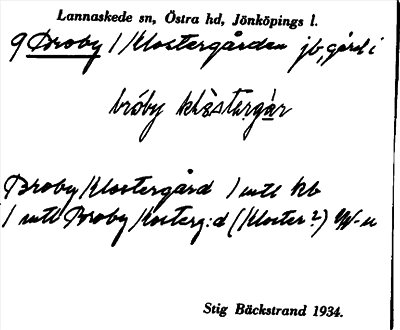 Lannaskede sn, Östra hd, Jönköpings l.
9 Broby /Klostergården jb, gård i
bróby klòstərgår
Broby Klostergård 1 mtl kb
1 mtl Broby Klosterg:d (Kloster?)
Stig Bäckstrand 1934.